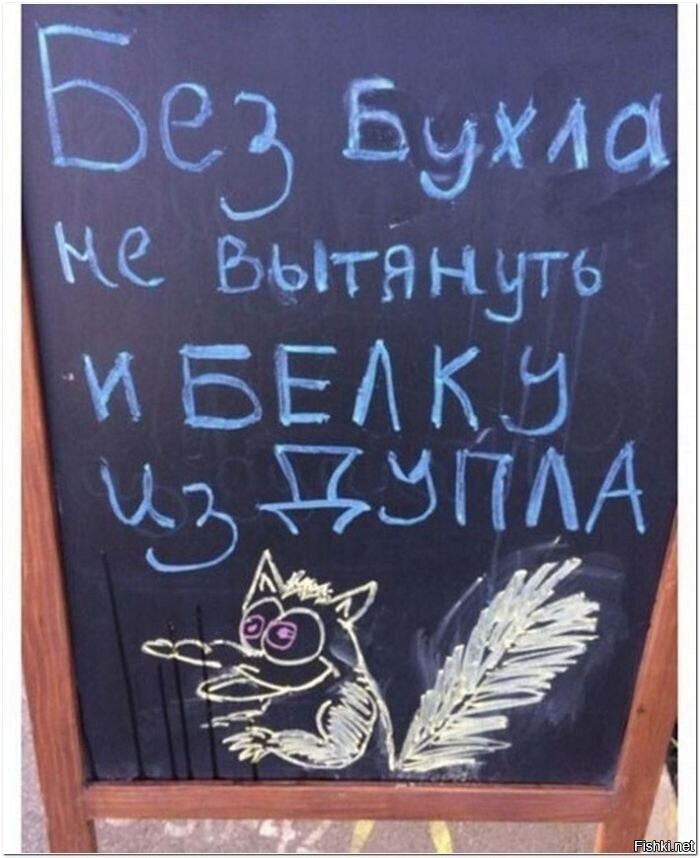 Без Бухла
не вытянуть
и БЕЛКУ
из ДУПЛА
Fishki.net